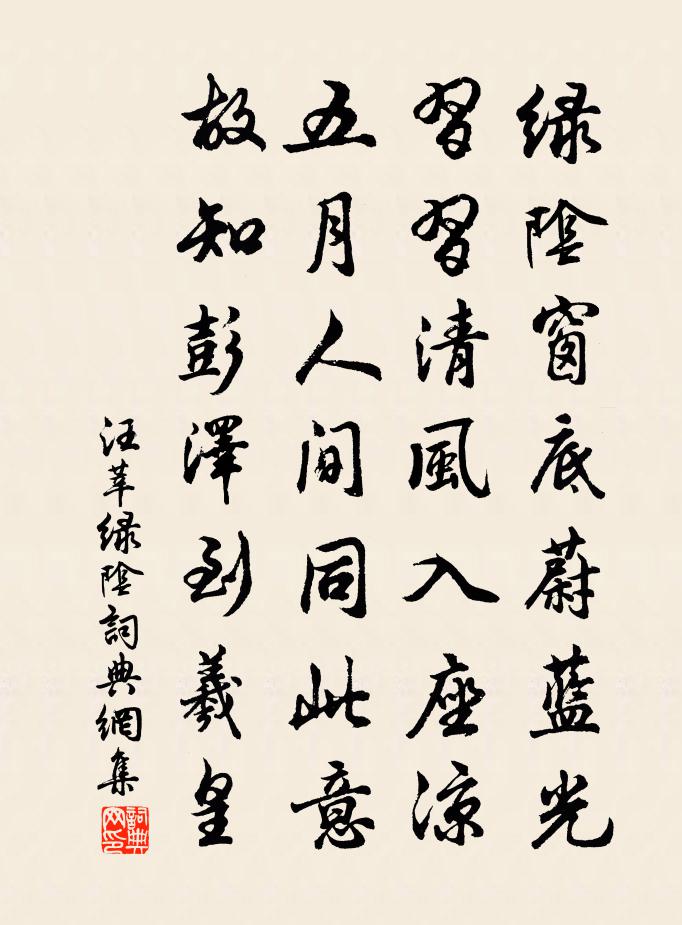 綠陰窗底蔚藍光
習習清風入座涼
五月人間同此意
故知彭澤到羲皇
汪莘綠陰詞典網集
詞典网印